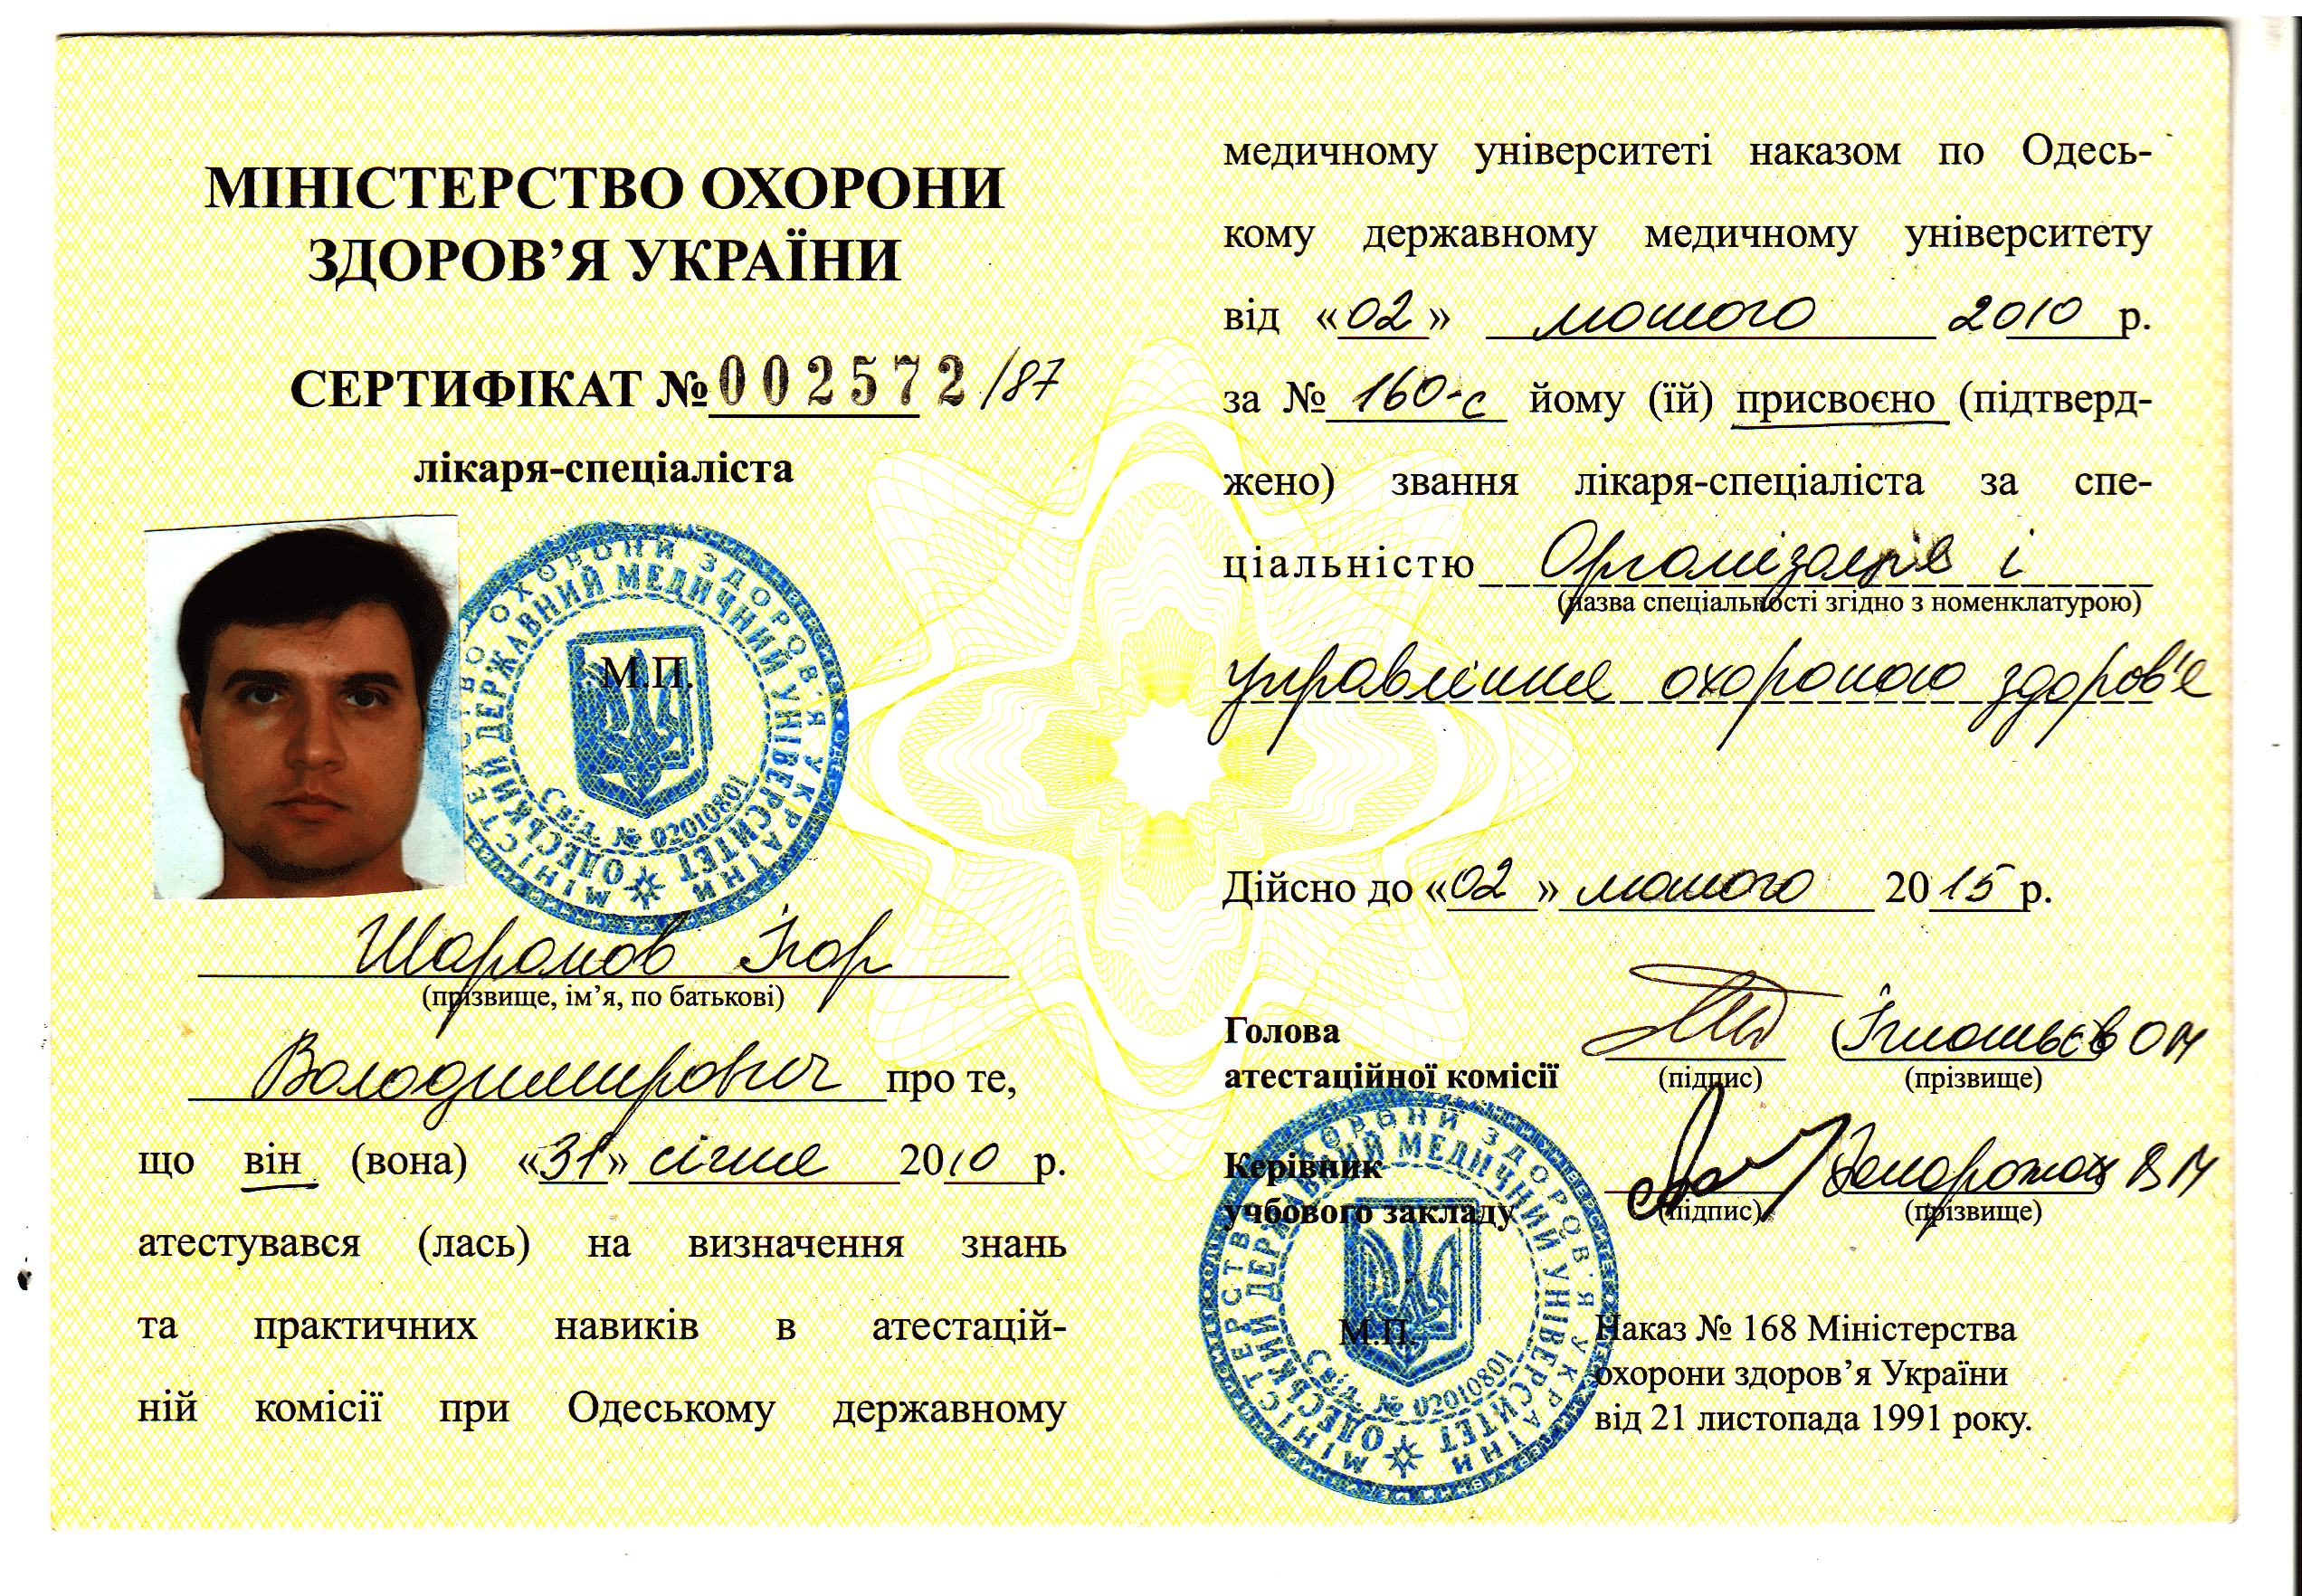 МІНІСТЕРСТВО ОХОРОНИ
ЗДОРОВ’Я УКРАЇНИ
СЕРТИФІКАТ № 002572/87
лікаря-спеціаліста
МІНІСТЕРСТВО ОХОРОНИ ЗДОРОВ'Я УКРАЇНИ
ОДЕСЬКИЙ ДЕРЖАВНИЙ МЕДИЧНИЙ УНІВЕРСИТЕТ
Свід. № 02010801
М.П.
Шарамов Ігор
(прізвище, ім’я, по батькові)
Володимирович про те,
що він (вона) «31» січня 2010 р.
атестувався (лась) на визначення знань
та практичних навиків в атестацій-
ній комісії при Одеському державному
медичному університеті наказом по Одесь-
кому державному медичному університету
від «02» лютого 2010 р.
за № 160-с йому (їй) присвоєно (підтверд-
жено) звання лікаря-спеціаліста за спе-
ціальністю Організація і
(назва спеціальності згідно з номенклатурою)
управління охороною здоров'я
Дійсно до «02» лютого 2015 р.
Голова
атестаційної комісії
(підпис) (прізвище)
Керівник
учбового закладу
Запорожан В М
(підпис) (прізвище)
МІНІСТЕРСТВО ОХОРОНИ ЗДОРОВ'Я УКРАЇНИ
ОДЕСЬКИЙ ДЕРЖАВНИЙ МЕДИЧНИЙ УНІВЕРСИТЕТ
Свід. № 02010801
М.П.
Наказ № 168 Міністерства
охорони здоров’я України
від 21 листопада 1991 року.